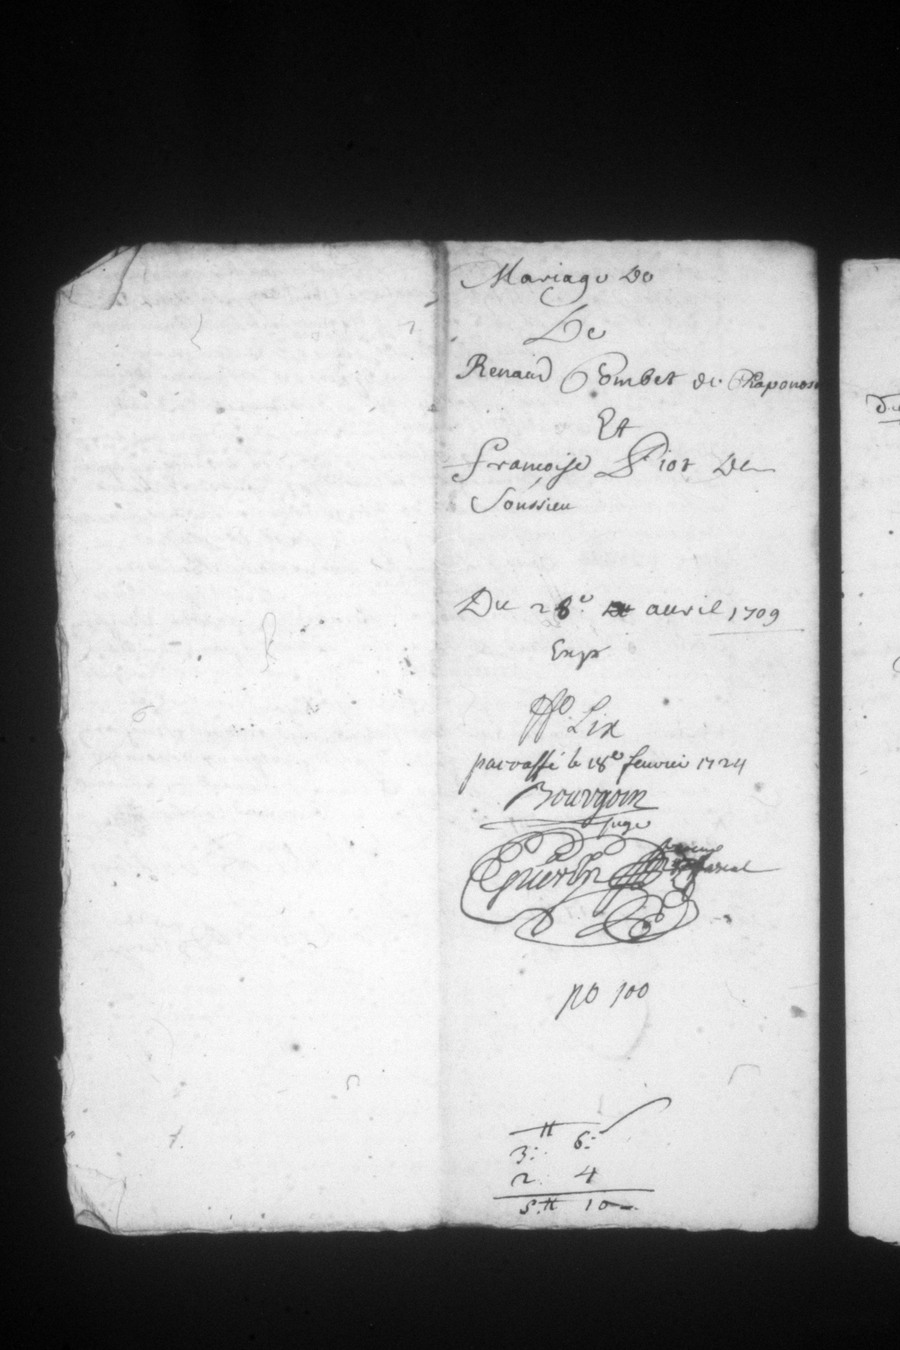 Mariage De
De
Renaud Combet de Chaponost
Et
francoise Piot De
Soussieu
Du 28e avril 1709
Exp
Lix
paraffé le 18e feuvrier 1724
Bourgoin
juge
Guerin
no 100
tt
3: 6:
2 4
5.tt 10